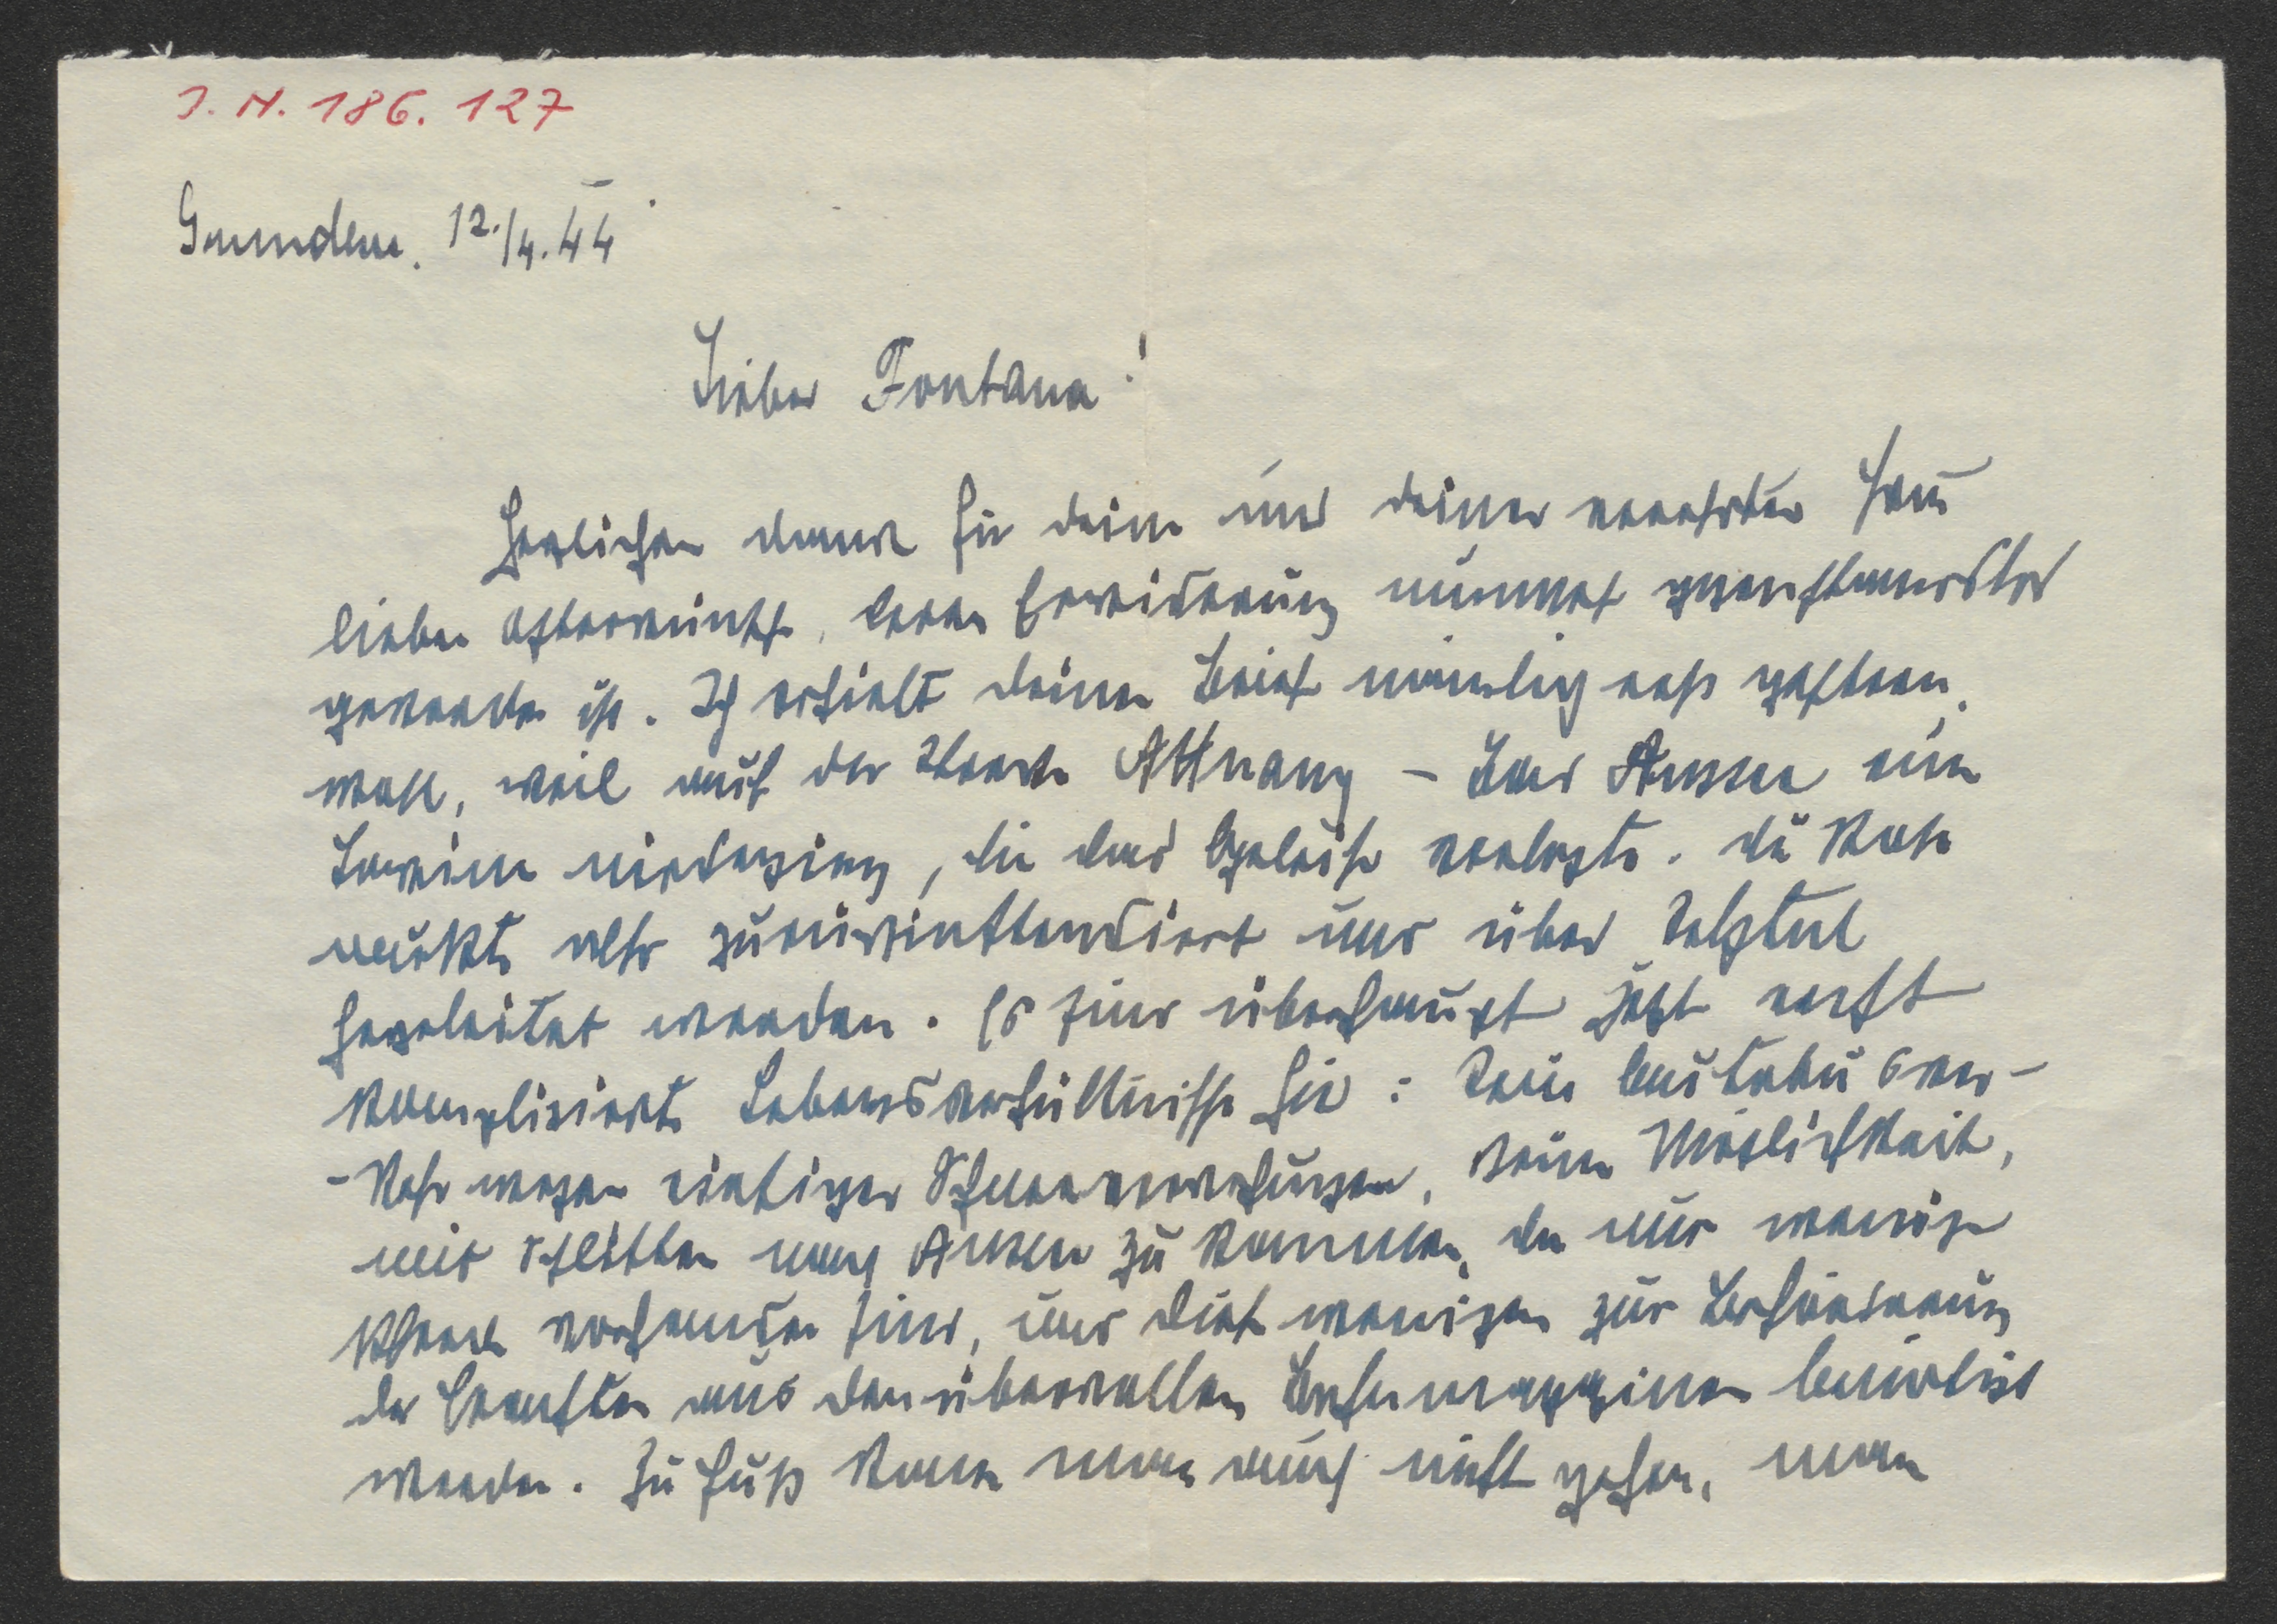 J. N. 186.127
Gmunden. 12./4. 44
Lieber Fontana!
Herzlichen Dank für deine und deiner verehrten Frau
lieben Osterwünsche, deren Erwiderung nunmehr gegenstandslos
geworden ist. Ich erhielt deinen Brief nämlich erst gestern,
wohl, weil auf der Strecke Attnang - Bad Aussee eine
Lawine niederging, die das Geleise verlegte. Die Post
mußte also zurückinstradiert und über Selztal
hergeleitet werden. Es sind überhaupt jetzt recht
komplizierte Lebensverhältnisse hier: Kein Autobusver-
-kehr wegen riesiger Schneeverwehungen, keine Möglichkeit,
mit Schlitten nach Aussee zu kommen, da nur wenige
Pferde vorhanden sind, und diese wenigen zur Beförderung
der Frachten aus den übervollen Bahnmagazinen benötigt
werden. Zu Fuß kann man auch nicht gehen, man